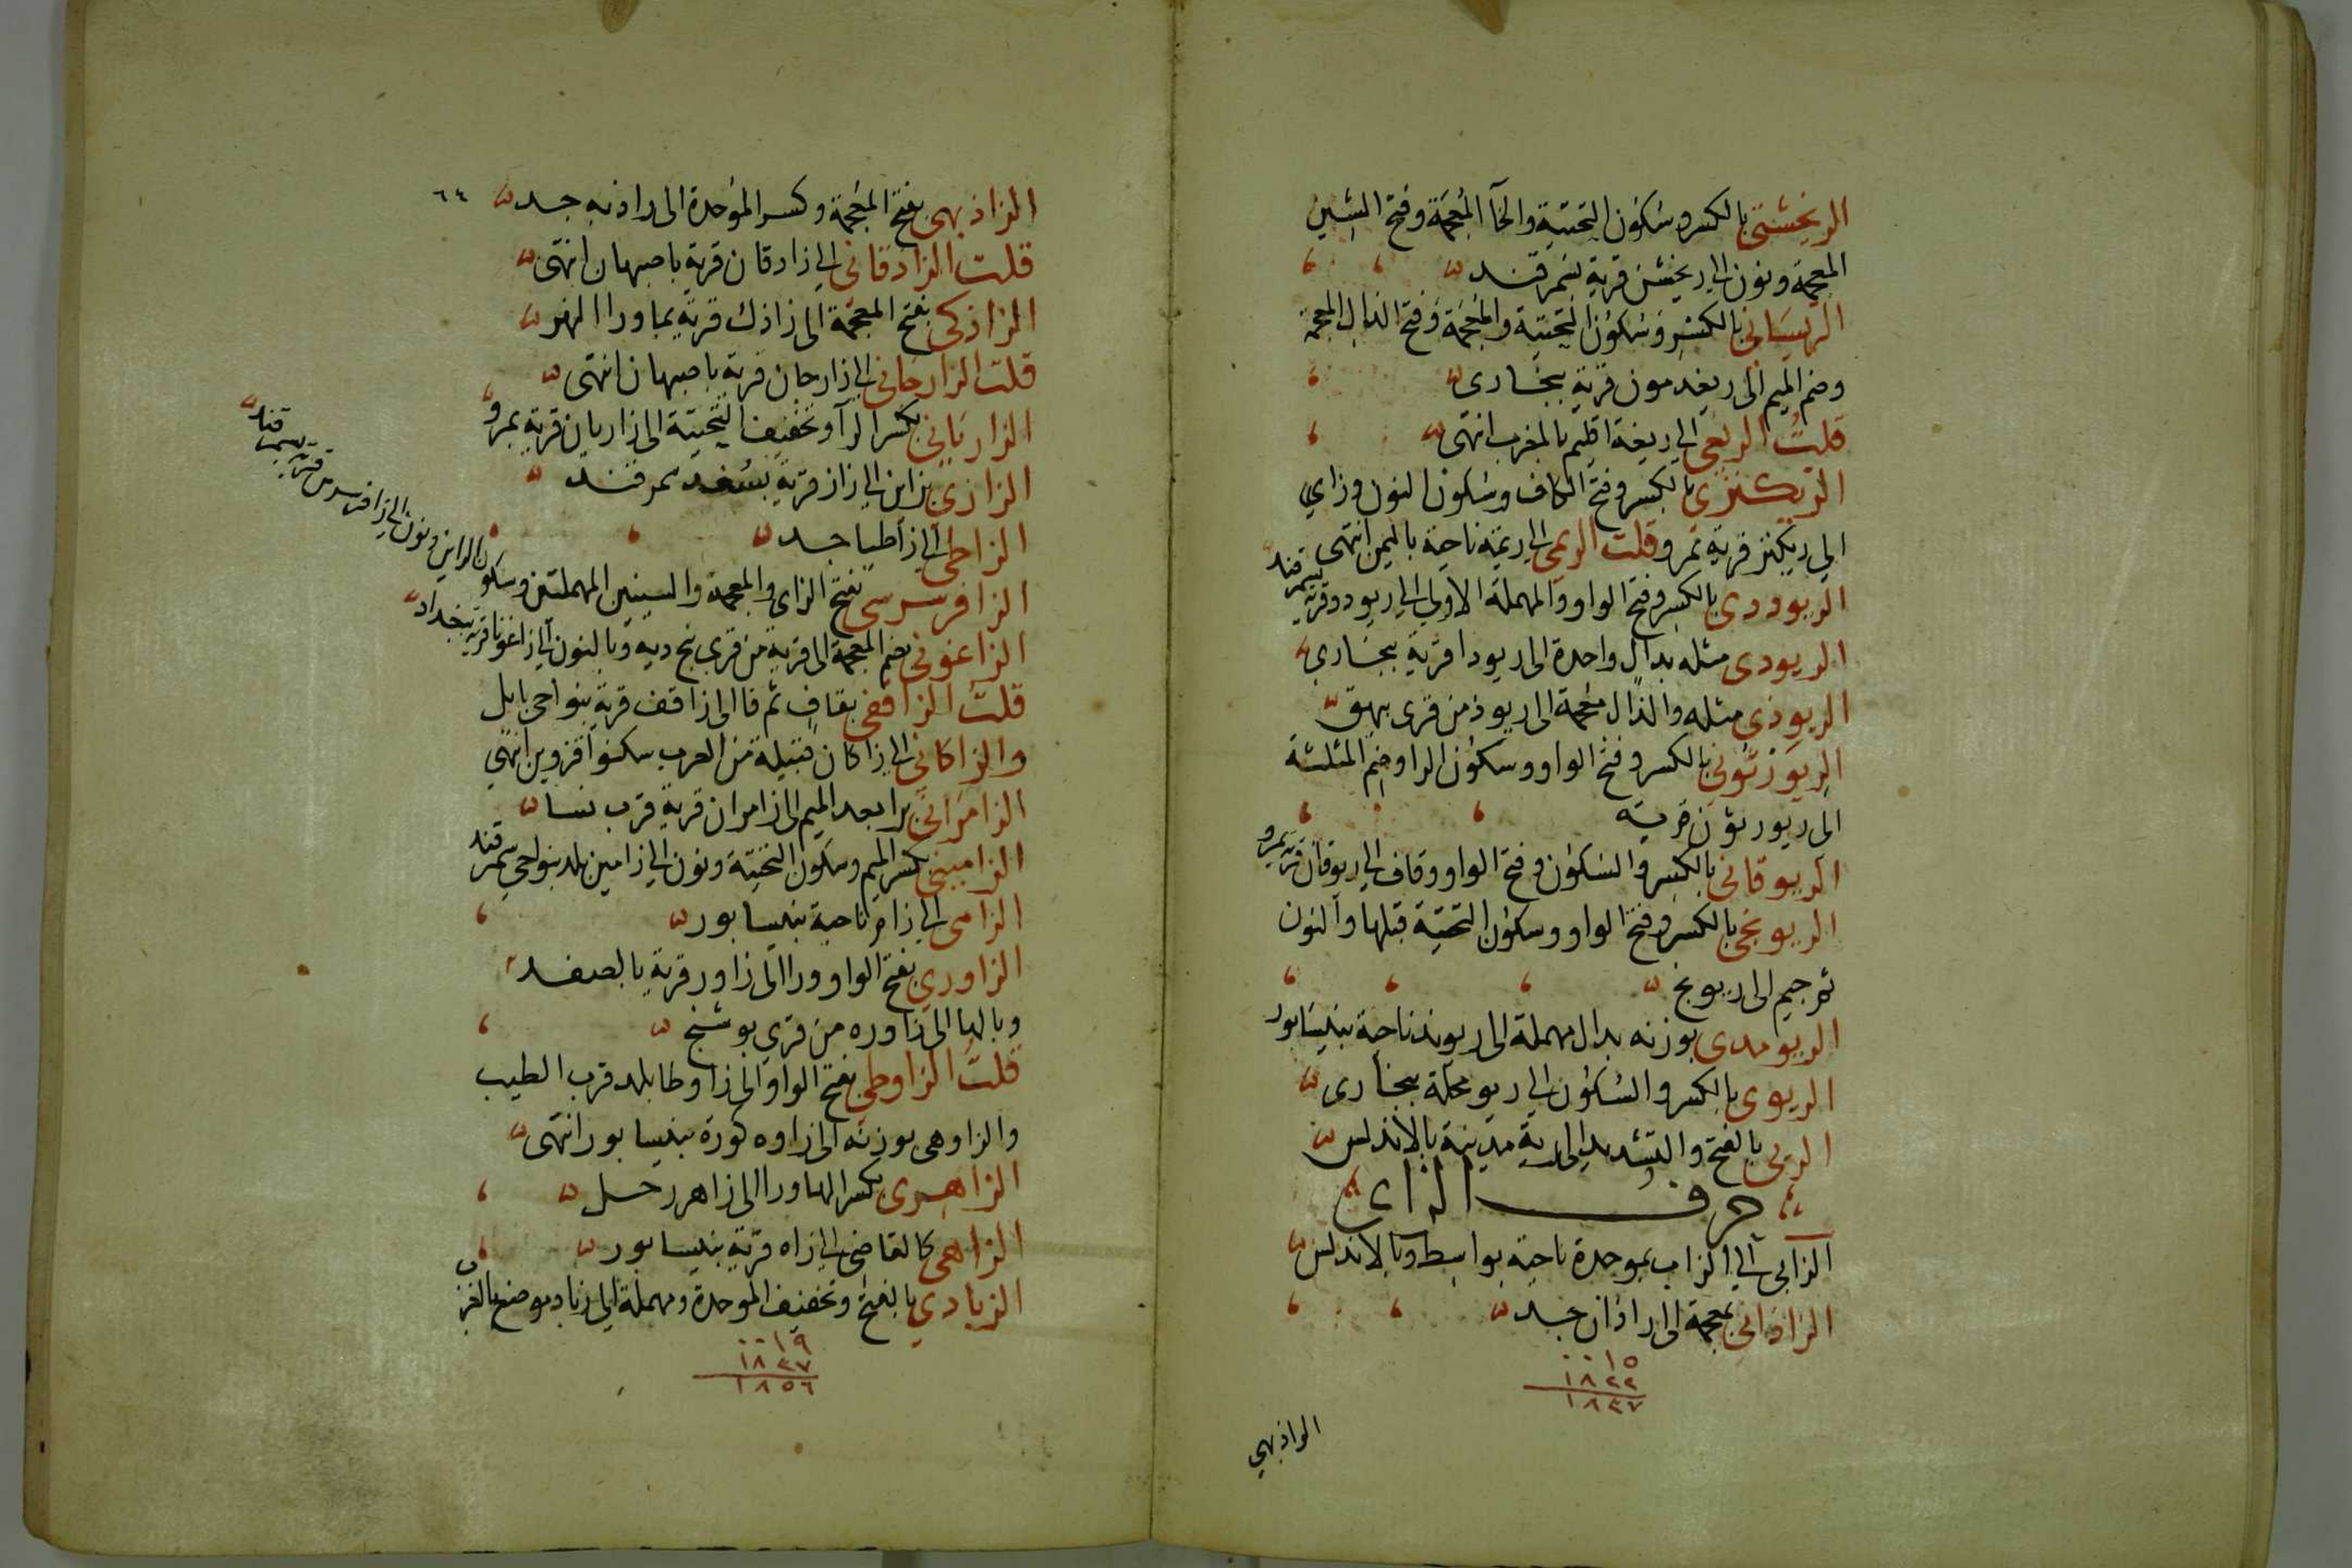 الريخشنى بالكسر وسكون التحتية والخآ المعجمة وفتح الشين
المعجمة ونون الى ريخشن قرية بسمرقند
بالكسر وسكون التحتية والمعجمة وفتح الدال المعجمة
وضم الميم الى ريغدمون قرية ببخارى
قلت الريغى الى ريغة اقليم بالمغرب انتهى
الريكنزى بالكسر وفتح الكاف وسكون النون وزاي
الى ريكنز قرية بمرو قلت الريمى الى ريمة ناحية باليمن انتهى
الريوددى بالكسر وفتح الواو والمهملة الاولى الى ريودد قرية بسمرقند
الريودى مثله بدال واحدة الى ريودا قرية ببخارى
الريوذى مثله والذال معجمة الى ريوذ من قرى بيهق
الريورثونى بالكسر وفتح الواو وسكون الرا وضم المثلثة
الى ريورثون قرية
الريوقانى بالكسر والسكون وفتح الواو وقاف الى ريوقان قرية بمرو
الريونجى بالكسر وفتح الواو وسكون التحتية قبلها والنون
ثم جيم الى ريونج
الريومدى بوزنه بدال مهملة الى ريوند ناحية بنيسابور
الريوى بالكسر والسكون الى ريو محلة ببخارى
الريى بالفتح والتشديد الى رية مدينة بالاندلس
حرف الزاى
الزابى الى الزاب بموحدة ناحية بواسط وبالاندلس
الزاذانى بمعجمة الى زاذان جد
٠٠١٥
١٨٢٢
١٨٣٧
الزاذبهى
٦٤
الزاذبهى بفتح المعجمة وكسر الموحدة الى زاذبه جد
قلت الزادقانى الى زادقان قرية باصبهان انتهى
الزاذكى بفتح المعجمة الى زاذك قرية بماورا النهر
قلت الزارجانى الى زارجان قرية باصبهان انتهى
الزاريانى بكسر الرآ وتخفيف التحتية الى زاريان قرية بمرو
الزازى بزاين الى زاز قرية بسغد سمرقند
الزاطى الى زاطيا جد
الزافرسرسى بفتح الزاى والمعجمة والسينين المهملتين وسكون الراين ونون الى زافرسرسن قرية بسمرقند
الزاغونى بضم المعجمة الى قرية من قرى بنج ديه وبالنون الى زاغونا قرية ببغداد
قلت الزاقفى بقاف ثم فا الى زاقف قرية بنواحى بابل
والزاكانى الى زاكان قبيلة من العرب سكنوا قزوين انتهى
الزامرانى برا بعد الميم الى زامران قرية قرب نسا
الزامينى بكسر الميم وسكون التحتية ونون الى زامين بلد بنواحى سمرقند
الزامى الى زام ناحية بنيسابور
الزاورى بفتح الواو ورا الى زاور قرية بالصغد
وبالها الى زاوره من قرى بوشنج
قلت الزاوطى بفتح الواو الى زاوطا بلد قرب الطيب
والزاوهى بوزنه الى زاوه كورة بنيسابور انتهى
الزاهرى بكسر الها ورا الى زاهر رجل
الزاهى كالقاضى الى زاه قرية بنيسابور
الزبادي بالفتح وتخفيف الموحدة ومهملة الى زباد موضع بالغرب
٠٠١٩
١٨٣٧
١٨٥٦